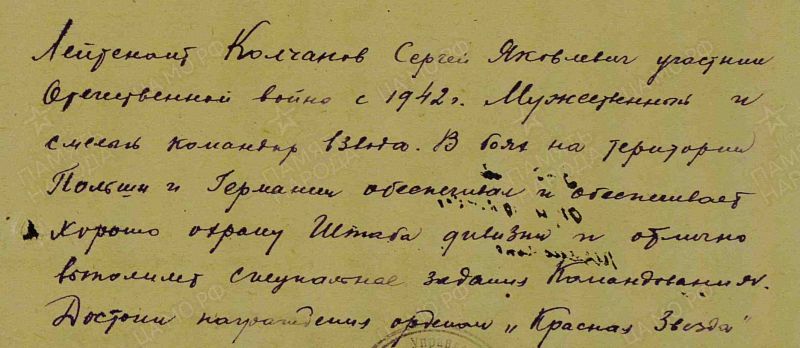 Лейтенант Колчанов Сергей Яковлевич участник
Отечественной войны с 1942 г. Мужественный и
смелый командир взвода. В боях на територии
Польши и Германии обеспечивал и обеспечивает
хорошо охрану Штаба дивизии и отлично
выполняет специальное задания Командования.
Достоин награждения орденом „Красная Звезда"
Управ